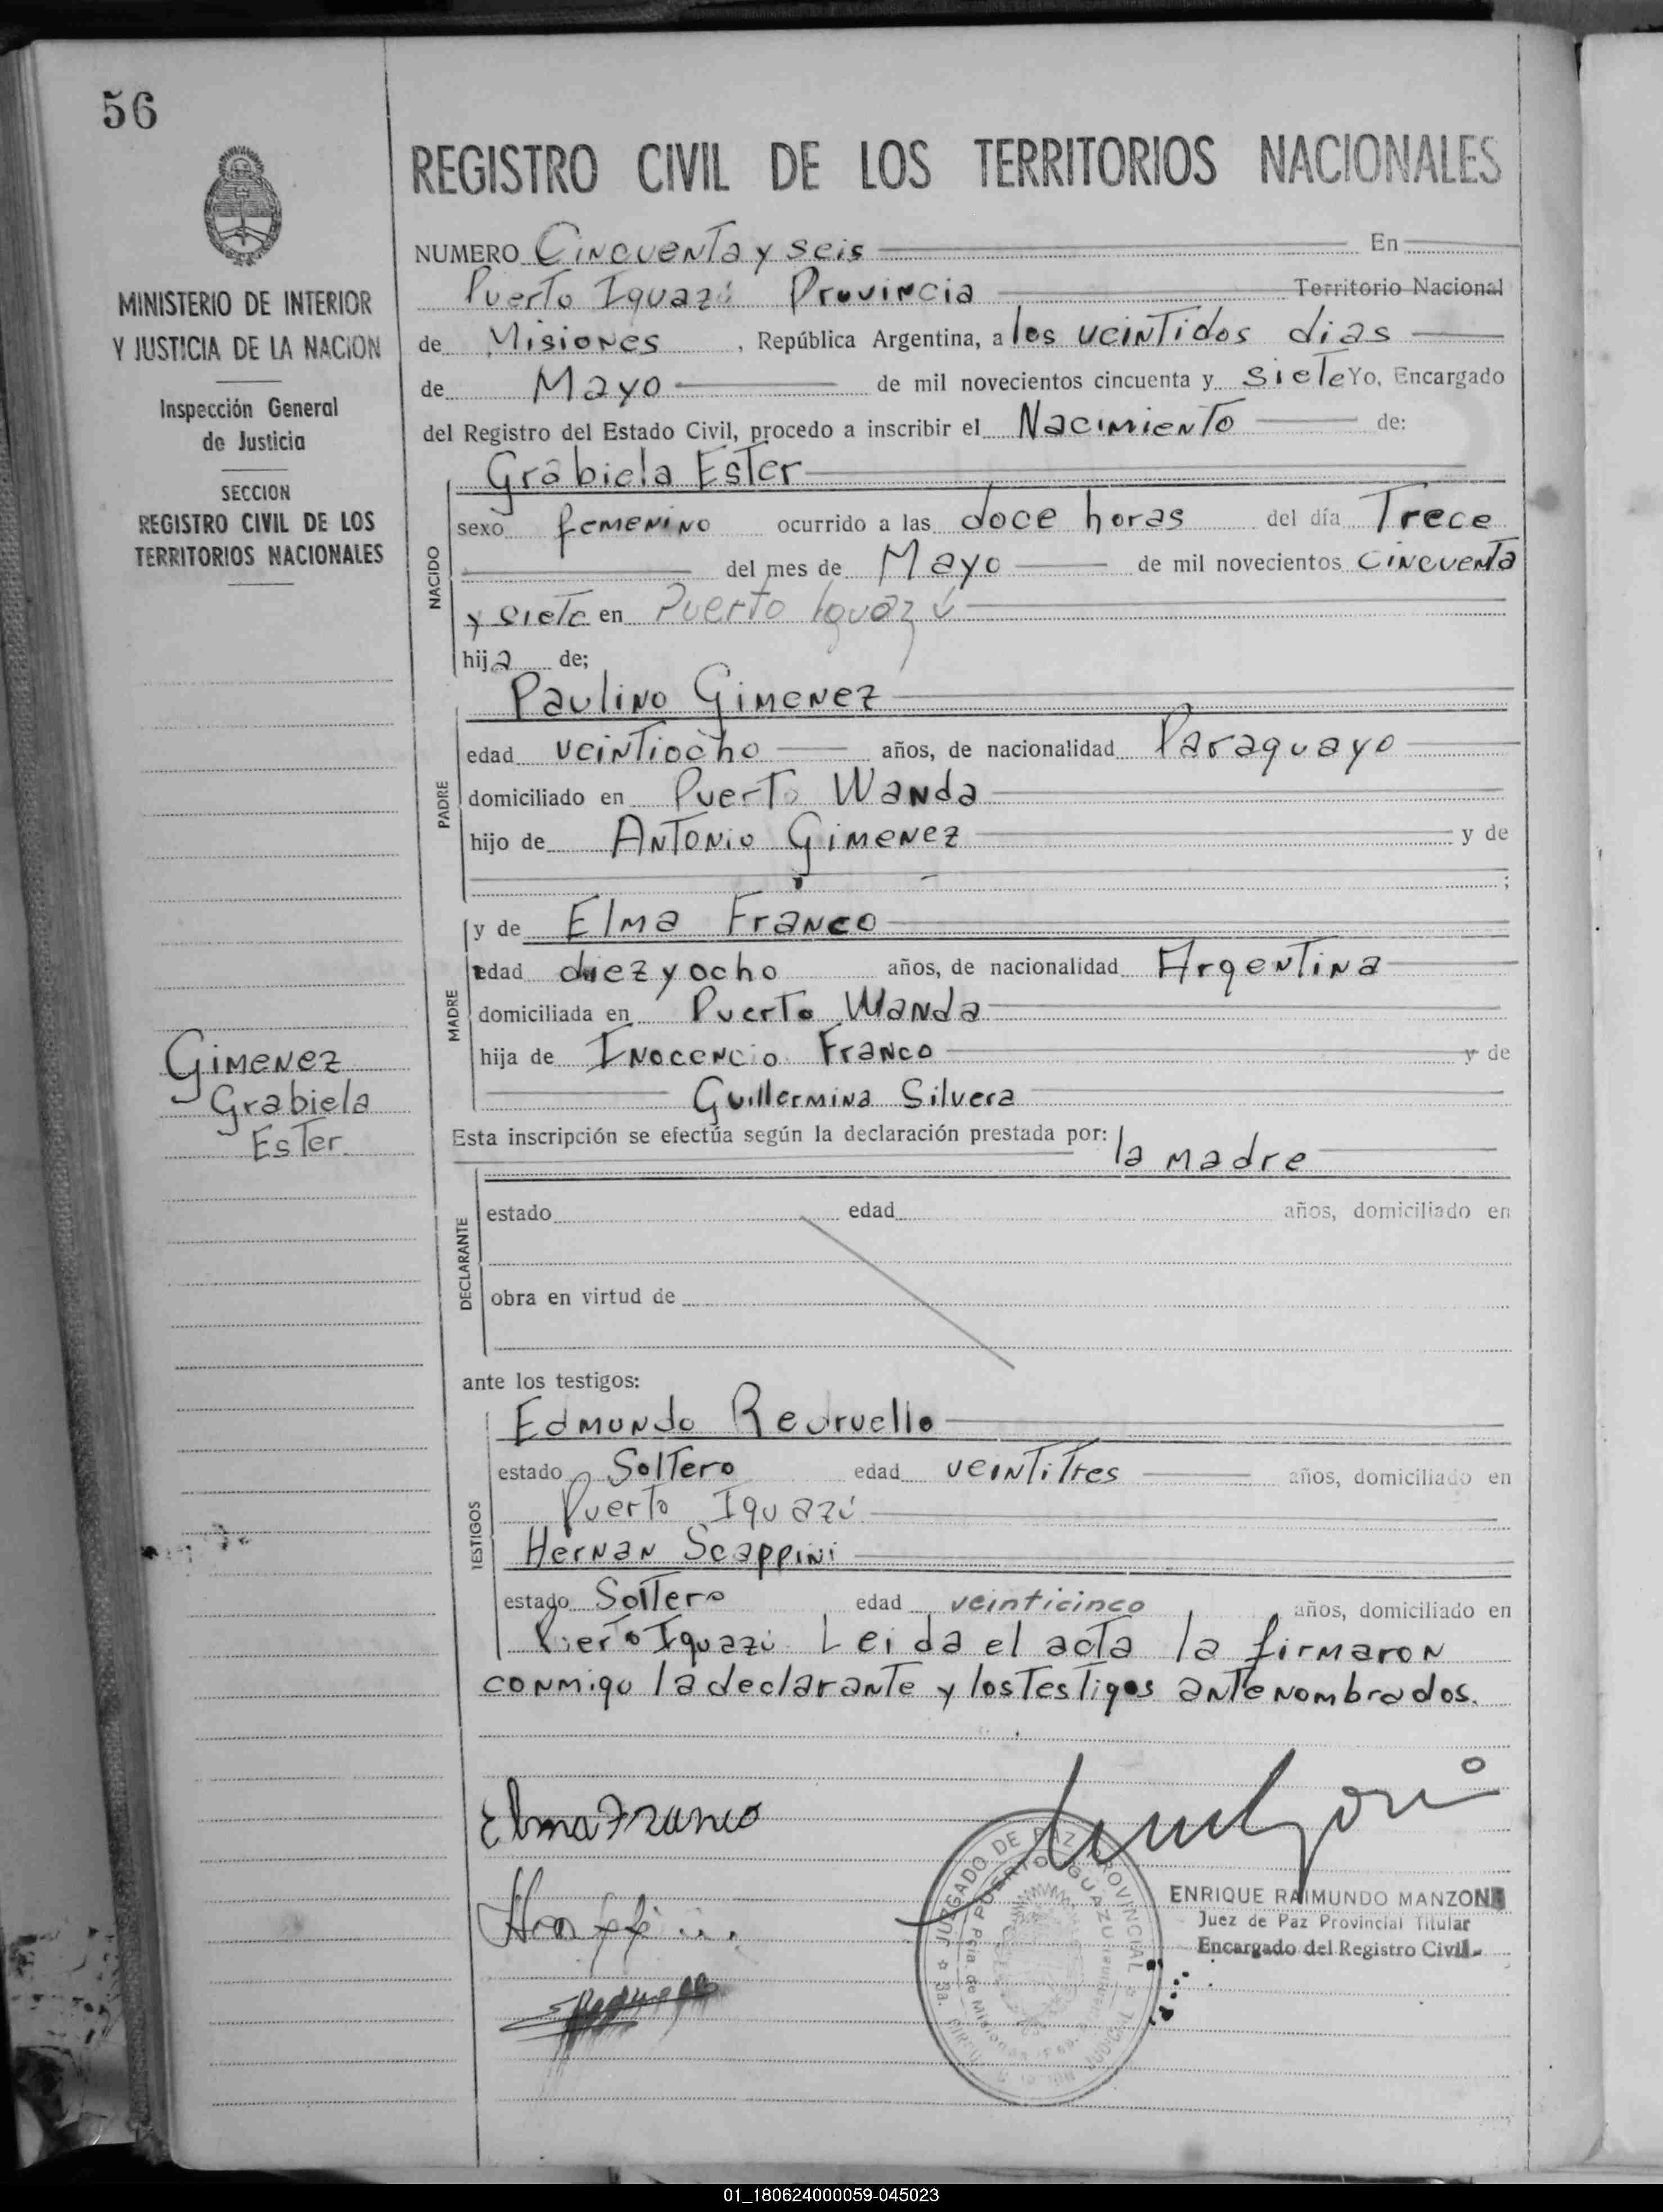 56
REGISTRO CIVIL DE LOS TERRITORIOS NACIONALES
MINISTERIO DE INTERIOR
Y JUSTICIA DE LA NACION
Inspección General
de Justicia
SECCION
REGISTRO CIVIL DE LOS
TERRITORIOS NACIONALES
Gimenez
Grabiela
Ester
NUMERO Cincuenta y seis En
Puerto Iguazú Provincia Territorio Nacional
de Misiones, República Argentina, a los veintidos dias
de Mayo de mil novecientos cincuenta y siete Yo, Encargado
del Registro del Estado Civil, procedo a inscribir el Nacimiento de:
Grabiela Ester
NACIDO
sexo femenino ocurrido a las doce horas del día Trece
del mes de Mayo de mil novecientos cincuenta
y siete en Puerto Iguazú
hija de;
Paulino Gimenez
PADRE
edad veintiocho años, de nacionalidad Paraguayo
domiciliado en Puerto Wanda
hijo de Antonio Gimenez y de
;
y de Elma Franco
MADRE
edad diez y ocho años, de nacionalidad Argentina
domiciliada en Puerto Wanda
hija de Inocencio Franco y de
Guillermina Silvera
Esta inscripción se efectúa según la declaración prestada por: la madre
DECLARANTE
estado edad años, domiciliado en
obra en virtud de
ante los testigos:
Edmundo Redruello
TESTIGOS
estado Soltero edad veintitres años, domiciliado en
Puerto Iguazú
Hernan Scappini
estado Soltero edad veinticinco años, domiciliado en
Puerto Iguazú Leida el acta la firmaron
conmigo la declarante y los testigos antenombrados.
Elma Franco
JUZGADO DE PAZ PROVINCIAL
PUERTO IGUAZU
Pcia. de Misiones
ENRIQUE RAIMUNDO MANZONI
Juez de Paz Provincial Titular
Encargado del Registro Civil
01_180624000059-045023